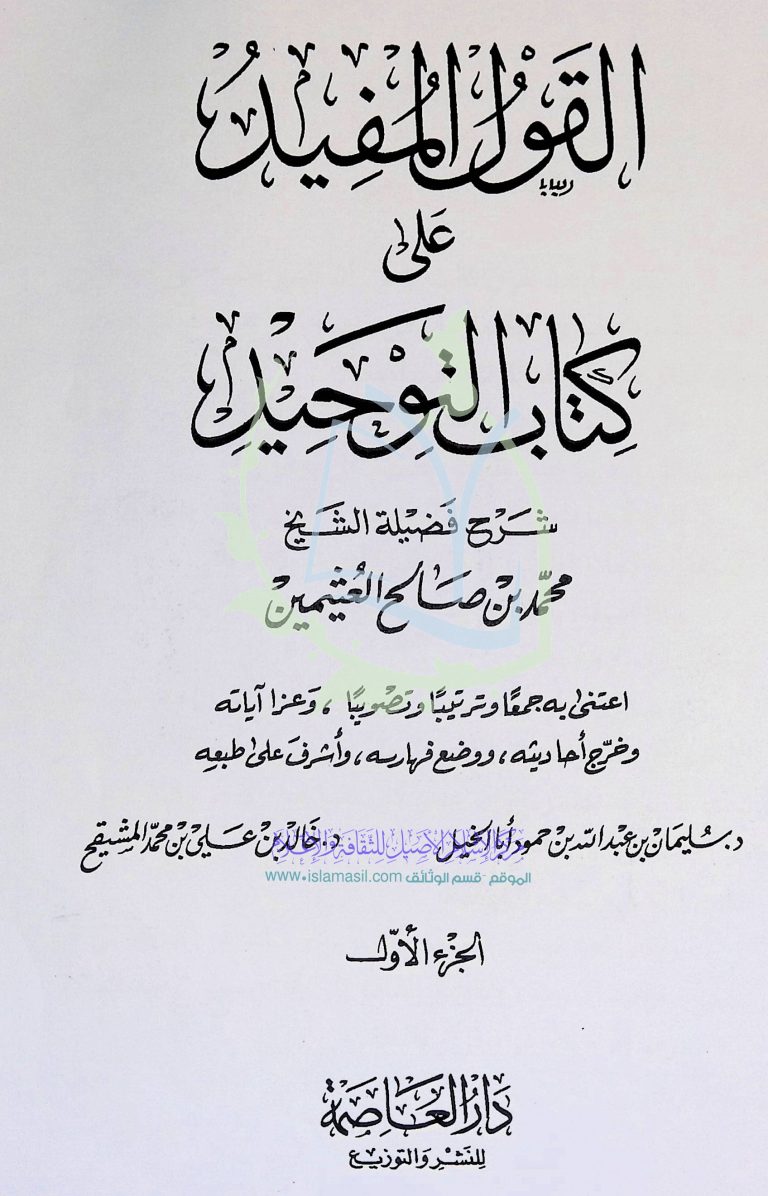 القَولُ المُفِيدُ
عَلى
كِتَابِ التَّوحِيدِ
شَرْح فَضِيلة الشَّيخ
محمّد بن صَالح العُثَيمين
اعتنى به جمعًا وترتيبًا وتصْويبًا ، وَعزا آياته
وخرّج أحاديثه ، ووضع فهارسه ، وأشرفَ على طبعه
د. سُليمَان بن عبد الله بن حمود أبا الخيل د. خَالد بن عَلي بن محمّد المشيقح
الموقع - قسم الوثائق www.islamasil.com
الجزء الأوّل
دَارُ العَاصِمَة
لِلنَشْرِ وَالتوزيع